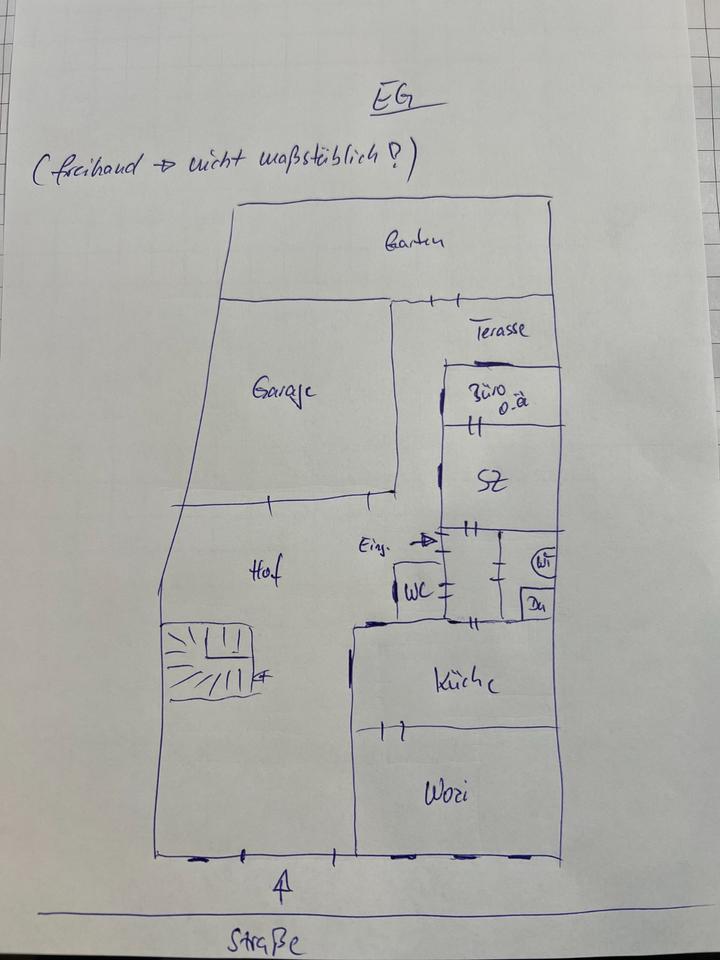 EG
(freihand → nicht maßstäblich?)
Garten
Terasse
Garage
Büro
o.ä
SZ
Eing.
Hof
WC
Wi
Du
Küche
Wozi
Straße